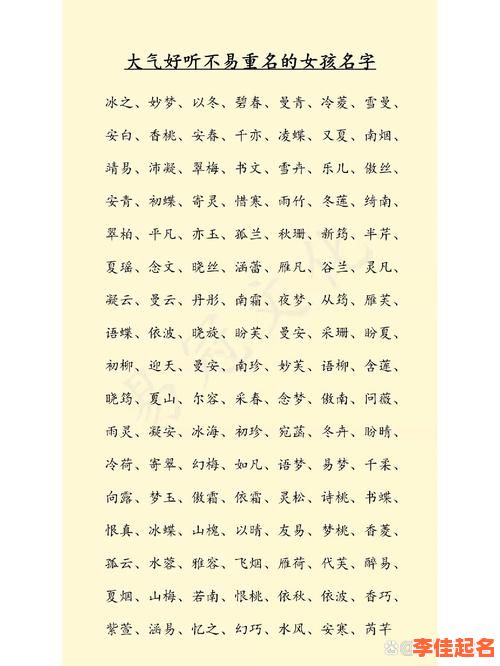 大气好听不易重名的女孩名字
冰之、妙梦、以冬、碧春、曼青、冷菱、雪曼、
安白、香桃、安春、千亦、凌蝶、又夏、南烟、
靖易、沛凝、翠梅、书文、雪卉、乐儿、傲丝、
安青、初蝶、寄灵、惜寒、雨竹、冬莲、绮南、
翠柏、平凡、亦玉、孤兰、秋珊、新筠、半芹、
夏瑶、念文、晓丝、涵蕾、雁凡、谷兰、灵凡、
凝云、曼云、丹彤、南霜、夜梦、从筠、雁芙、
语蝶、依波、晓旋、盼芙、曼安、采珊、盼夏、
初柳、迎天、曼安、南珍、妙芙、语柳、含莲、
晓筠、夏山、尔容、采春、念梦、傲南、问薇、
雨灵、凝安、冰海、初珍、宛菡、冬卉、盼晴、
冷荷、寄翠、幻梅、如凡、语梦、易梦、千柔、
向露、梦玉、傲霜、依霜、灵松、诗桃、书蝶、
恨真、冰蝶、山槐、以晴、友易、梦桃、香菱、
孤云、水蓉、雅容、飞烟、雁荷、代芙、醉易、
夏烟、山梅、若南、恨桃、依秋、依波、香巧、
紫萱、涵易、忆之、幻巧、水风、安寒、芮芊
易覓文化
李佳起名